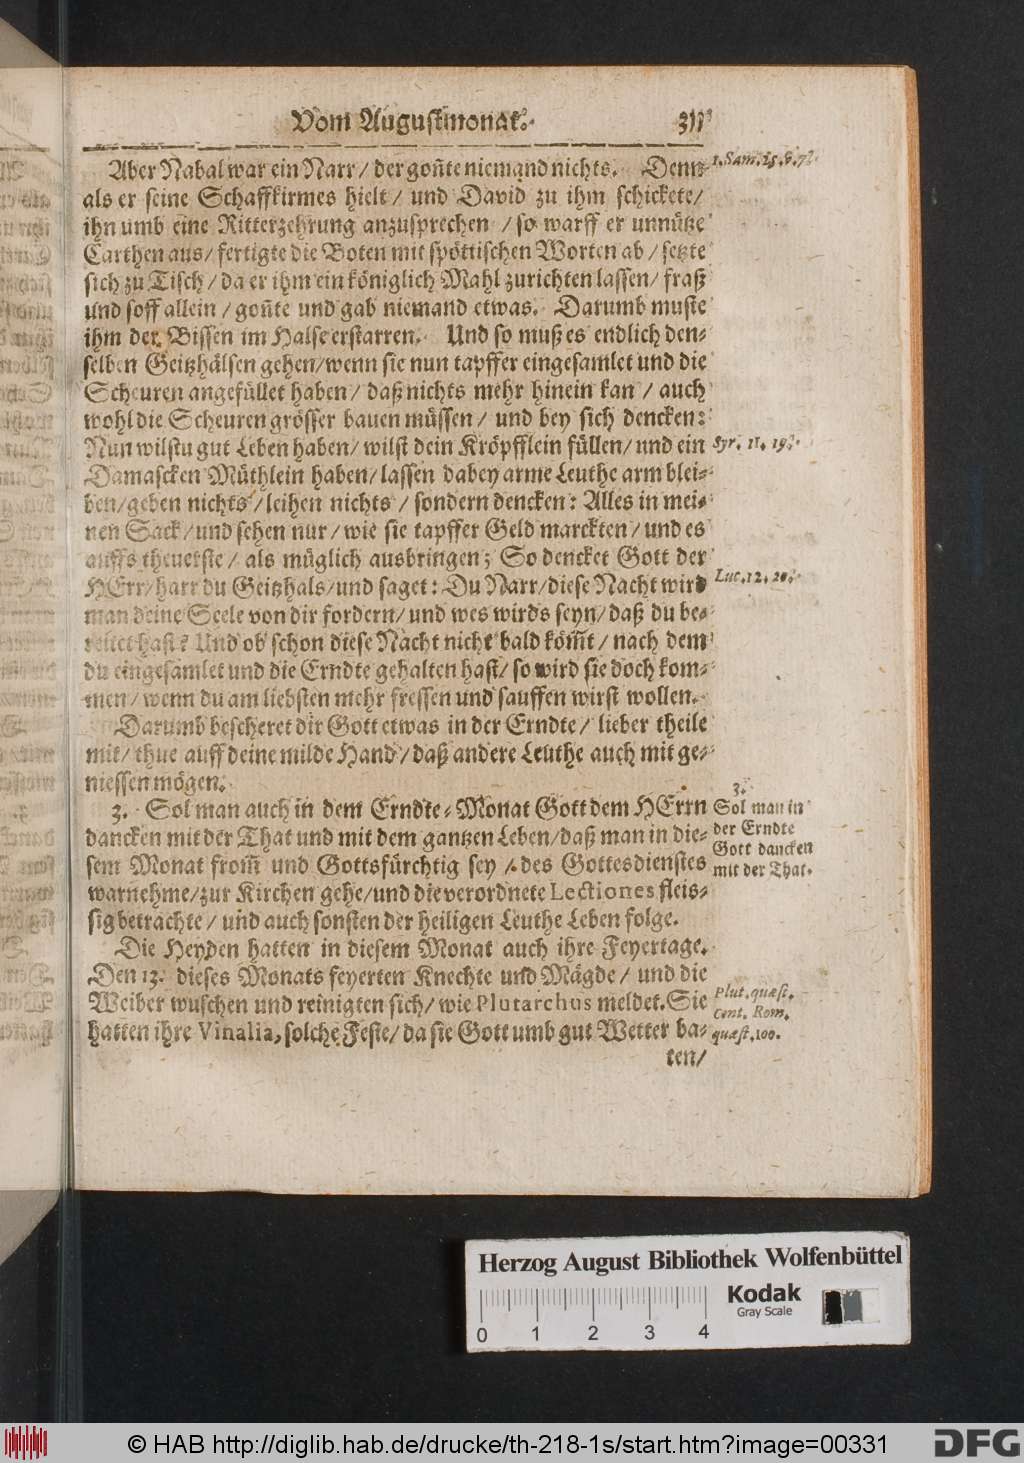 Vom Augustmonat. 311
Aber Nabal war ein Narr/ der goñte niemand nichts. Denn
als er seine Schaffkirmes hielt/ und David zu ihm schickete/
ihn umb eine Ritterzehrung anzusprechen / so warff er unnütze
Carthen aus/ fertigte die Boten mit spöttischen Worten ab/ setzte
sich zu Tisch/ da er ihm ein königlich Mahl zurichten lassen/ fraß
und soff allein / goñte und gab niemand etwas. Darumb muste
ihm der Bissen im Halse erstarren. Und so muß es endlich den-
selben Geitzhälsen gehen/wenn sie nun tapffer eingesamlet und die
Scheuren angefüllet haben/ daß nichts mehr hinein kan / auch
wohl die Scheuren grösser bauen müssen/ und bey sich dencken:
Nun wilstu gut Leben haben/ wilst dein Kröpfflein füllen/ und ein
Damascken Müthlein haben/ lassen dabey arme Leuthe arm blei-
ben/geben nichts/leihen nichts / sondern dencken: Alles in mei-
nen Sack/und sehen nur/ wie sie tapffer Geld marckten/ und es
auffs theuerste/ als müglich ausbringen; So dencket Gott der
HErr/harr du Geitzhals/und saget: Du Narr/diese Nacht wird
man deine Seele von dir fordern/ und wes wirds seyn/ daß du be-
reitet hast? Und ob schon diese Nacht nicht bald köm̃t/ nach dem
du eingesamlet und die Erndte gehalten hast/ so wird sie doch kom-
men/ wenn du am liebsten mehr fressen und sauffen wirst wollen.
Darumb bescheret dir Gott etwas in der Erndte/ lieber theile
mit/ thue auff deine milde Hand/ daß andere Leuthe auch mit ge-
niessen mögen.
3. Sol man auch in dem Erndte-Monat Gott dem HErrn
dancken mit der That und mit dem gantzen Leben/daß man in die-
sem Monat from̃ und Gottsfürchtig sey / des Gottesdienstes
warnehme/zur Kirchen gehe/und die verordnete Lectiones fleis-
sig betrachte/ und auch sonsten der heiligen Leuthe Leben folge.
Die Heyden hatten in diesem Monat auch ihre Feyertage.
Den 13. dieses Monats feyerten Knechte und Mägde/ und die
Weiber wuschen und reinigten sich/ wie Plutarchus meldet. Sie
hatten ihre Vinalia, solche Feste/ da sie Gott umb gut Wetter ba-
ten/
1. Sam. 25. 6. 7.
Syr. 11. 19.
Luc. 12. 20.
3.
Sol man in
der Erndte
Gott dancken
mit der That.
Plut. quæst.
Cent. Rom.
quæst. 100.
Herzog August Bibliothek Wolfenbüttel
0 1 2 3 4
Kodak
Gray Scale
© HAB http://diglib.hab.de/drucke/th-218-1s/start.htm?image=00331
DFG